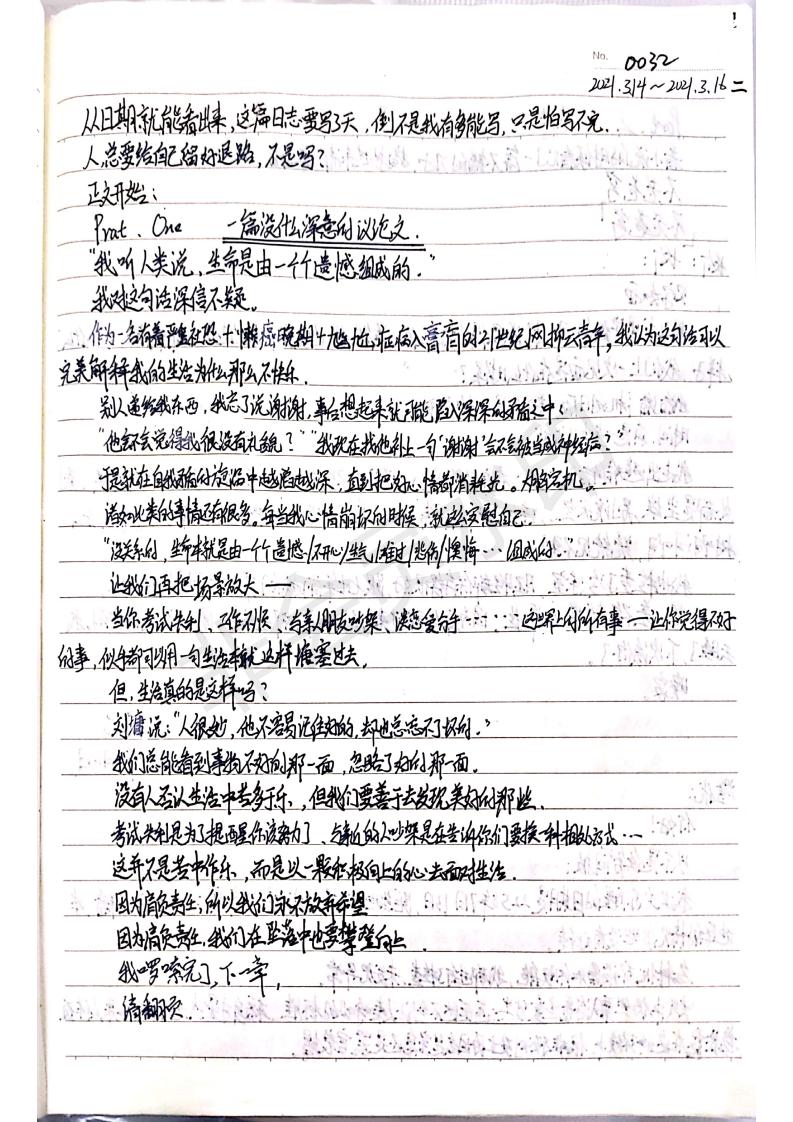 No. 0032
2021.3.14～2021.3.16 二
从日期就能看出来，这篇日志要写3天，倒不是我有多能写，只是怕写不完.
人总要给自己留好退路，不是吗？
正文开始：
Prat. One 一篇没什么深意的议论文.
“我听人类说，生命是由一个个遗憾组成的.”
我对这句话深信不疑。
作为一名有着严重社恐+懒癌晚期+尴尬症病入膏肓的21世纪网抑云青年，我认为这句话可以
完美解释我的生活为什么那么不快乐.
别人递给我东西，我忘了说谢谢，事后想起来就可能陷入深深的矛盾之中：
“他会不会觉得我很没有礼貌？”“我现在找他补上一句‘谢谢’会不会被当成神经病？”
于是就在自我矛盾的旋涡中越陷越深，直到把好心情都消耗光。 宕机。
诸如此类的事情还有很多。每当我心情崩坏的时候，就这么安慰自己.
“没关系的，生命本就是由一个个遗憾/不开心/生气/难过/悲伤/懊悔…组成的.”
让我们再把场景放大——
当你考试失利、工作不快、与亲人朋友吵架、谈恋爱分手……这世界上的所有事——让你觉得不好
的事，似乎都可以用一句生活本就这样搪塞过去.
但，生活真的是这样吗？
刘墉说：“人很妙，他不容易记住好的，却也总忘不了坏的.”
我们总能看到事物不好的那一面，忽略了好的那一面.
没有人否认生活中苦多于乐，但我们要善于去发现美好的那些.
考试失利是为了提醒你该努力了、与亲近的人吵架是在告诉你们要换一种相处方式…
这并不是苦中作乐，而是以一颗积极向上的心去面对生活.
因为肩负责任，所以我们永不放弃希望
因为肩负责任，我们在坠落中也要攀登向上.
我啰嗦完了，下一章，
请翻页.